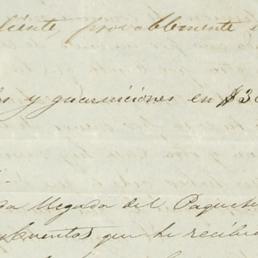 liente, provablemente
y guarniciones en $3
da llegada del Paquete
cuentas que he recibi